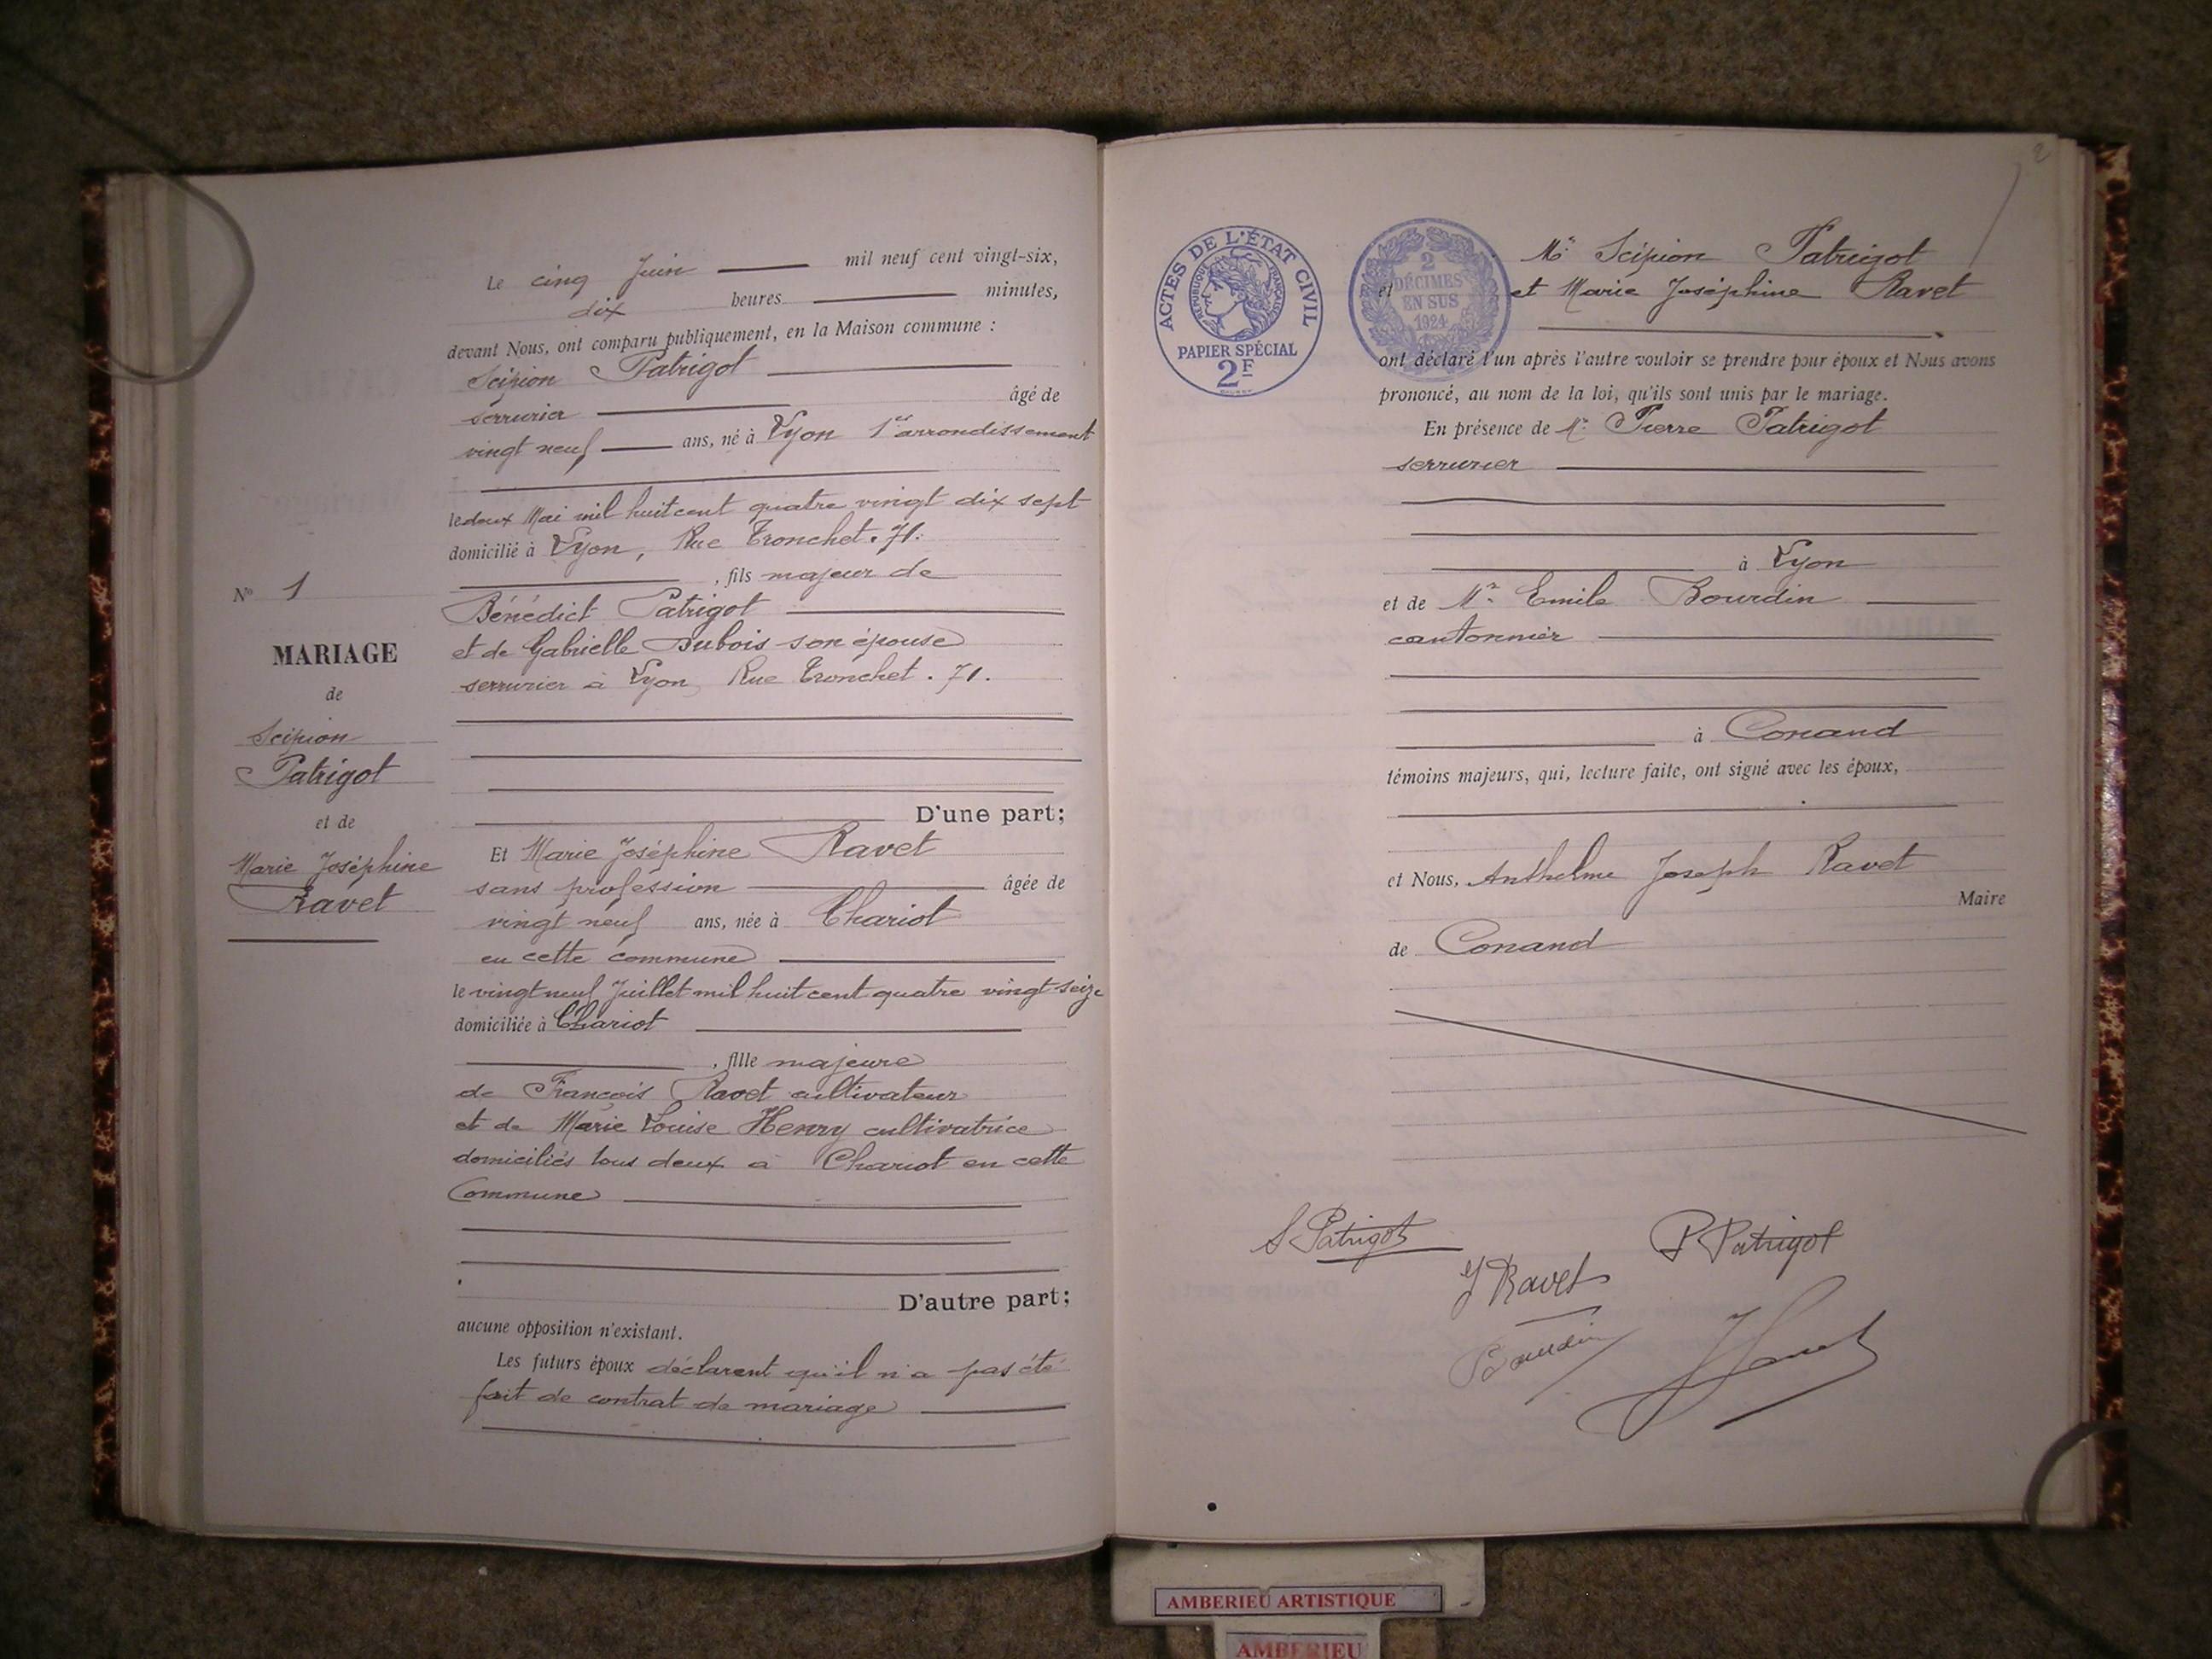 Le cinq Juin mil neuf cent vingt-six,
dix heures minutes,
devant Nous, ont comparu publiquement, en la Maison commune :
Scipion Patrigot
serrurier âgé de
vingt neuf ans, né à Lyon 1er arrondissement
le deux Mai mil huit cent quatre vingt dix sept
domicilié à Lyon, Rue Tronchet. 71.
, fils majeur de
Bénédict Patrigot
et de Gabrielle Dubois son épouse
serrurier à Lyon, Rue Tronchet. 71.
D'une part;
Et Marie Joséphine Ravet
sans profession âgée de
vingt neuf ans, née à Chariot
en cette commune
le vingt neuf Juillet mil huit cent quatre vingt seize
domiciliée à Chariot
, fille majeure
de François Ravet cultivateur
et de Marie Louise Henry cultivatrice
domiciliés tous deux à Chariot en cette
Commune
D'autre part;
aucune opposition n'existant.
Les futurs époux déclarent qu'il n'a pas été
fait de contrat de mariage
N° 1
MARIAGE
de
Scipion
Patrigot
et de
Marie Joséphine
Ravet
2
ACTES DE L'ÉTAT CIVIL
RÉPUBLIQUE FRANÇAISE
PAPIER SPÉCIAL
2F
2
DÉCIMES
EN SUS
1924
Mr Scipion Patrigot
et et Marie Joséphine Ravet
ont déclaré l'un après l'autre vouloir se prendre pour époux et Nous avons
prononcé, au nom de la loi, qu'ils sont unis par le mariage.
En présence de Mr Pierre Patrigot
serrurier
à Lyon
et de Mr Emile Bourdin
cantonnier
à Conand
témoins majeurs, qui, lecture faite, ont signé avec les époux,
et Nous, Anthelme Joseph Ravet
Maire
de Conand
S Patrigot
P Patrigot
J Ravet
Bourdin
AMBERIEU ARTISTIQUE
AMBERIEU